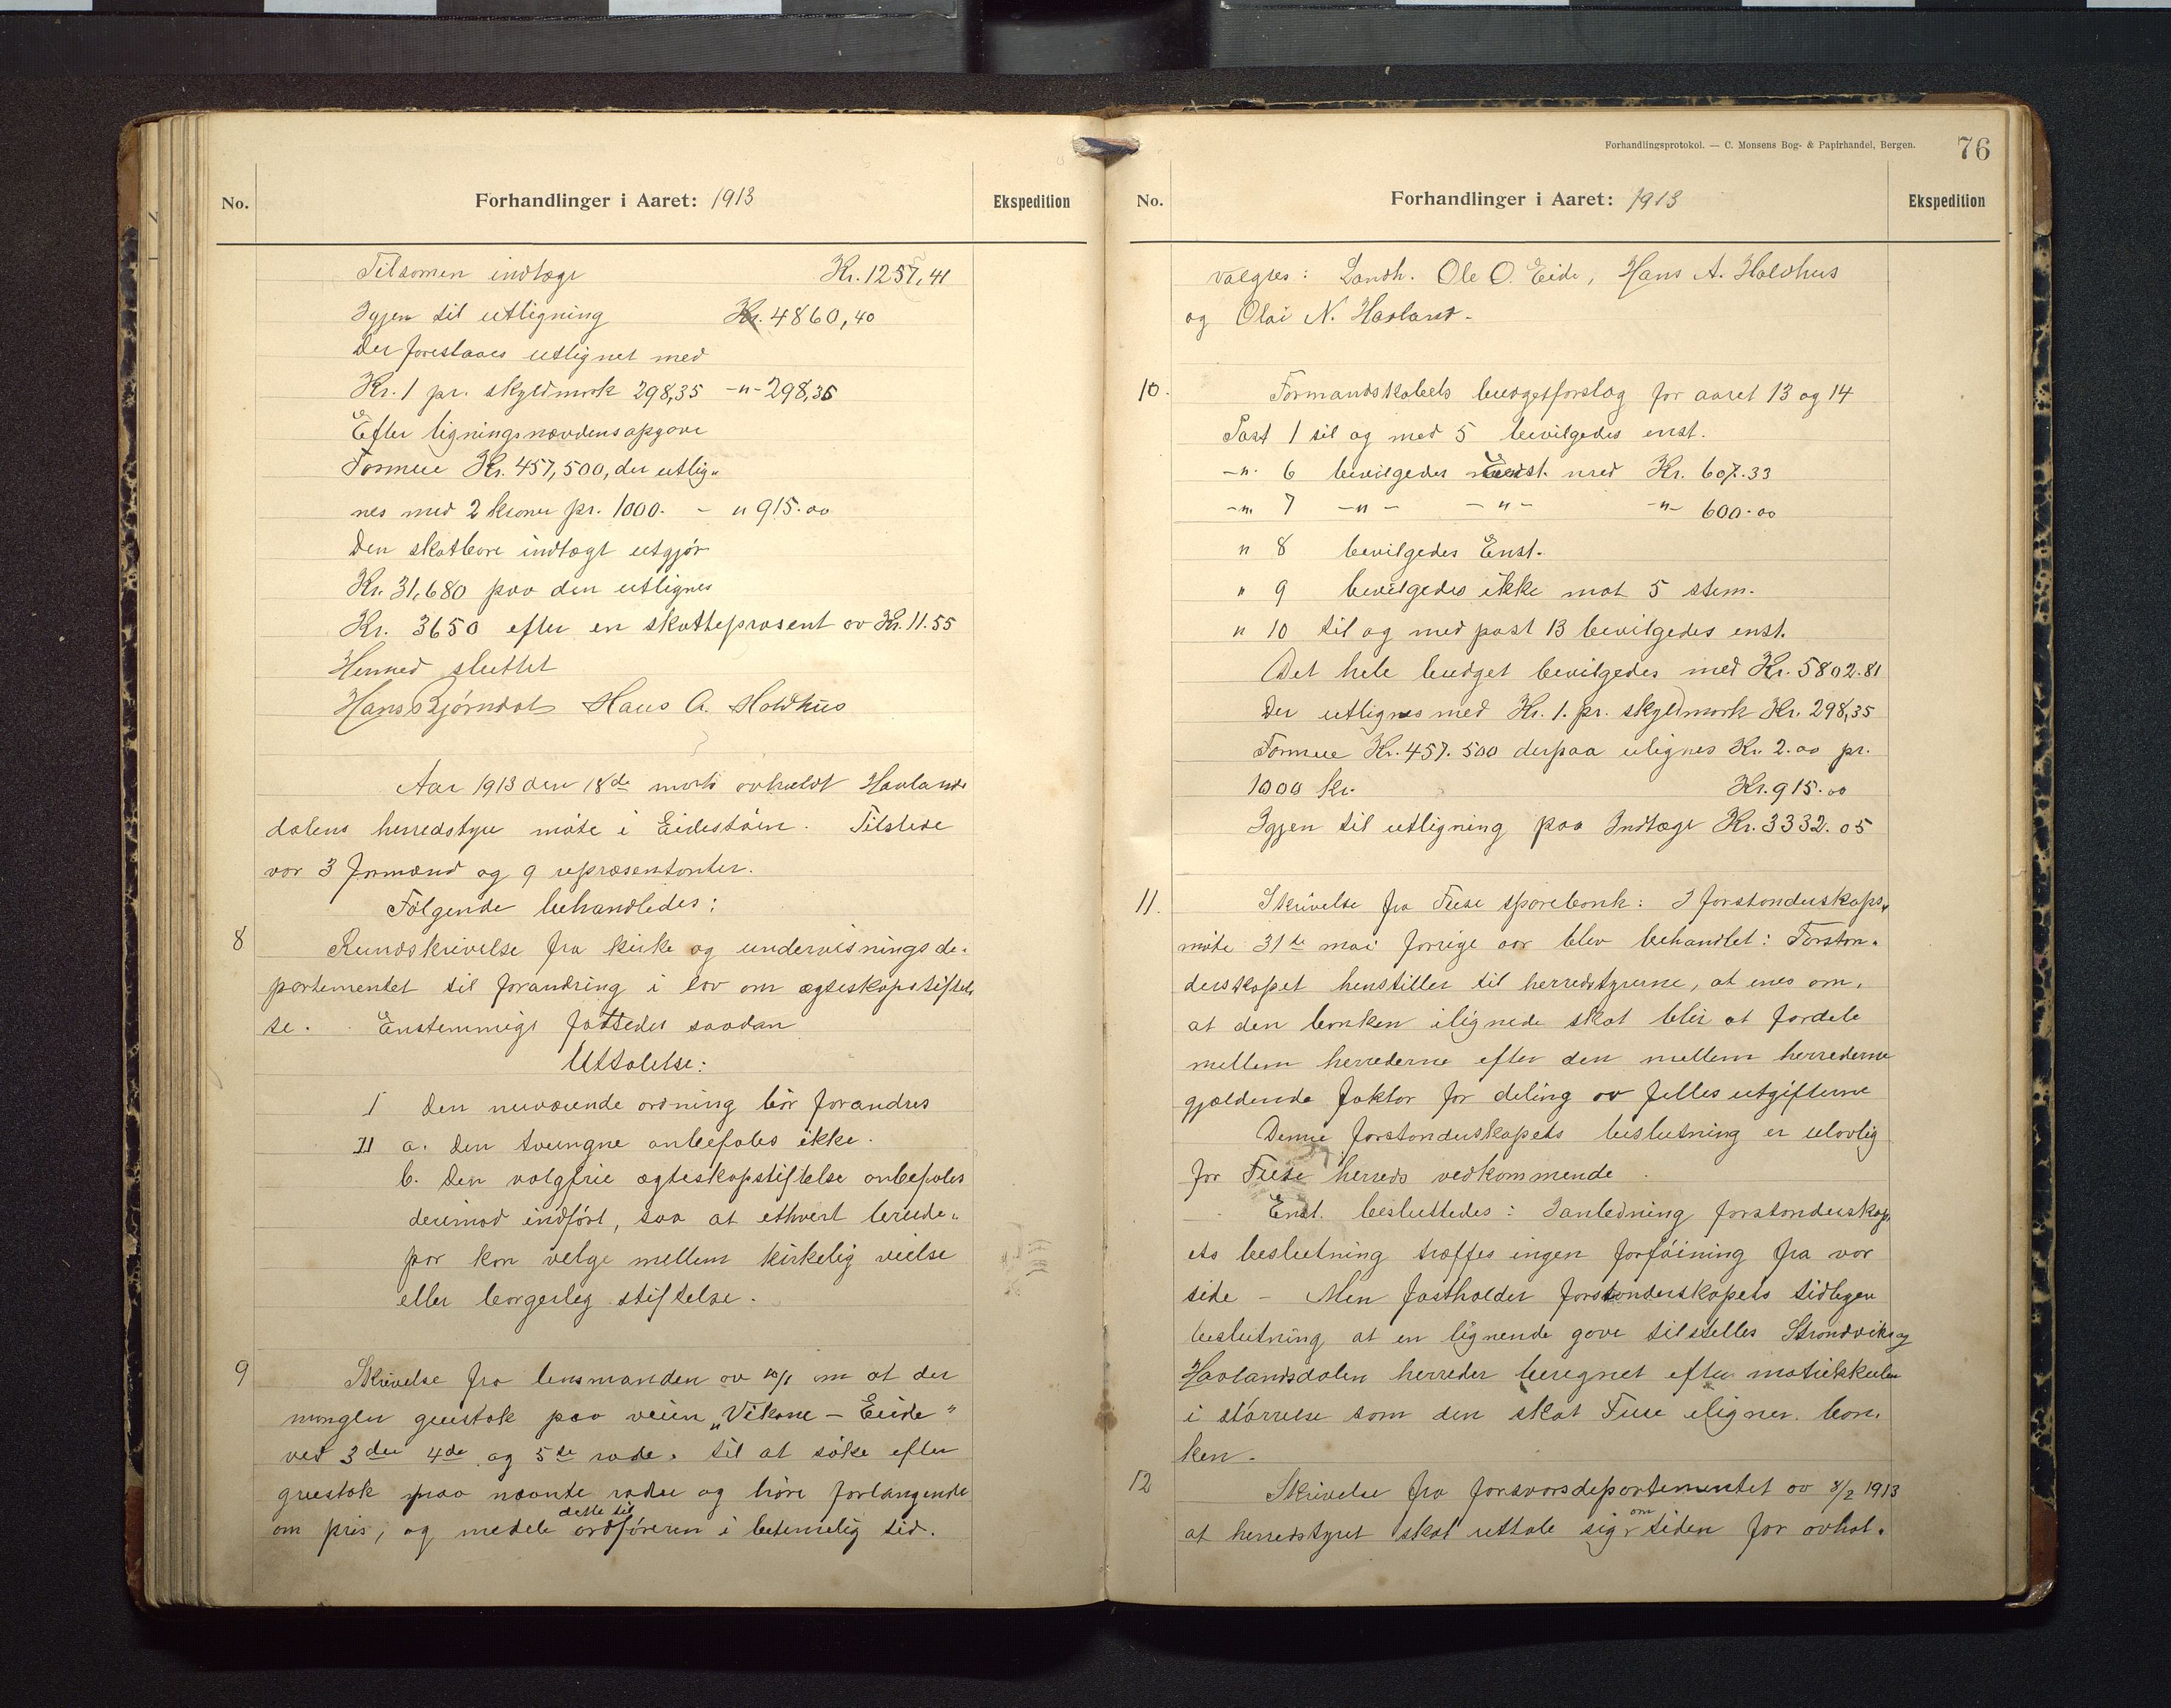 No.
Forhandlinger i Aaret: 1913
Ekspedition
Tilsamen indtægt Kr. 1257,41
Igjen til utligning Kr. 4860,40
Der foreslaaes utlignet med
Kr. 1 pr. skyldmark 298,35 -"- 298,35
Efter ligningsnævdens opgave
Formue Kr. 457,500, der utlig-
nes med 2 kroner pr. 1000. - " 915.00
Den skatbare indtægt utgjør
Kr. 31,680 paa den utlignes
Kr. 3650 efter en skatteprosent av Kr. 11.55
Hermed sluttet
Hans Bjørndal Hans A. Holdhus
Aar 1913 den 18de mars avholdt Haalands
dalens herredstyre møte i Eidestøen. Tilstede
var 3 formænd og 9 repræsentanter.
Følgende behandledes:
8 Rundskrivelse fra kirke og undervisningsde-
partementet til forandring i lov om ægteskapsstiftel-
se. Enstemmigt fattedes saadan
Uttalelse:
I Den nuværende ordning bør forandres
II a. Den tvungne anbefales ikke.
b. Den valgfrie ægteskapstiftelse anbefales
derimod indført, saa at ethvert brude-
par kan velge mellem kirkelig vielse
eller borgerleg stiftelse.
9 Skrivelse fra lensmanden av 10/1 om at der
mangler grustak paa veien „Vikane - Eide"
ved 3die 4de og 5te rode. til at søke efter
grustak paa nævnte roder og høre forlangende
om pris, og medele dette til ordføreren i betimelig tid.
Forhandlingsprotokol. — C. Monsens Bog- & Papirhandel, Bergen.
76
No.
Forhandlinger i Aaret: 1913
Ekspedition
valgtes: Landh. Ole O. Eide, Hans A. Holdhus
og Olai N. Haaland.
10. Formandskabets budgetforslag for aaret 13 og 14
Post 1 til og med 5 bevilgedes enst.
-"- 6 bevilgedes Enst. med Kr. 607.33
-"- 7 -"- -"- -"- 600.00
" 8 bevilgedes Enst.
" 9 bevilgedes ikke mot 5 stem.
" 10 til og med post 13 bevilgedes enst.
Det hele budget bevilgedes med Kr. 5802.81
Der utlignes med Kr. 1. pr. skyldmark Kr. 298,35
Formue Kr. 457.500 derpaa ulignes Kr. 2.00 pr.
1000 kr. Kr. 915.00
Igjen til utligning paa Indtægt Kr. 3332.05
11. Skrivelse fra Fuse sparebank: I forstanderskaps-
møte 31te mai forrige aar blev behandlet: Forstan-
derskapet henstiller til herredstyrerne, at enes om,
at den banken ilignede skat blir at fordele
mellem herrederne efter den mellem herrederne
gjældende faktor for deling av felles utgifterne
Denne forstanderskapets beslutning er ulovlig
for Fuse herreds vedkommende
Enst. besluttedes: I anledning forstanderskap-
ets beslutning træffes ingen forføining fra vor
side - Men fastholder forstanderskapets tidligere
beslutning at en lignende gave tilstilles Strandvik og
Haalandsdalen herreder beregnet efter matrikkulen
i størrelse som den skat Fuse iligner ban-
ken.
12 Skrivelse fra forsvarsdepartementet av 8/2 1913
at herredstyret skal uttale sig om tiden for avhol-